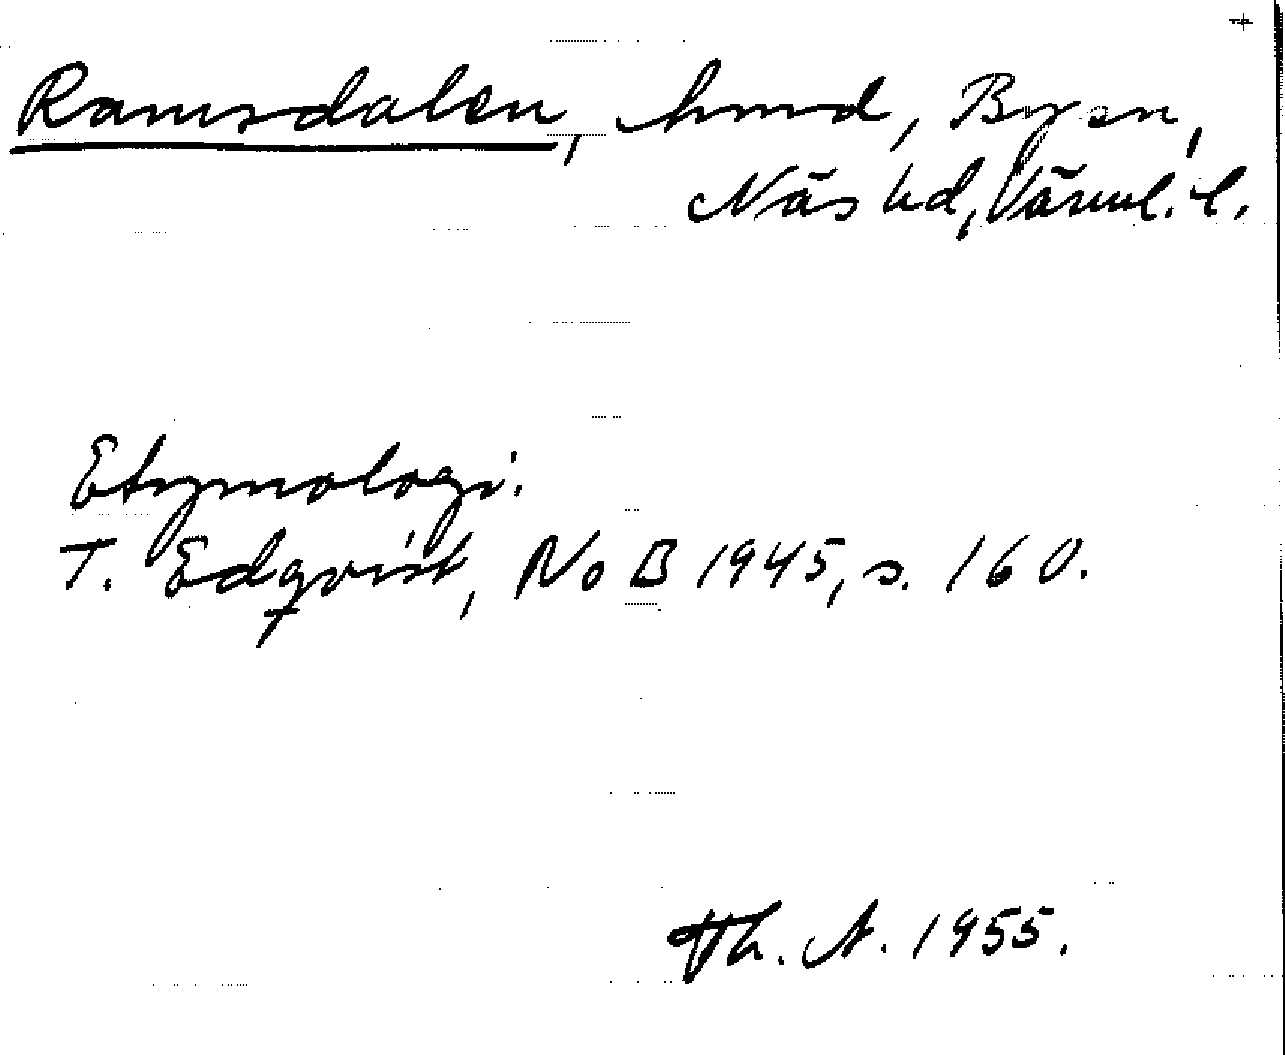 Ramsdalen, hmd, By sn,
Näs hd, Värml. l.
Etymologi.
T. Edqvist, NoB 1945, s. 160.
Th. A. 1955.